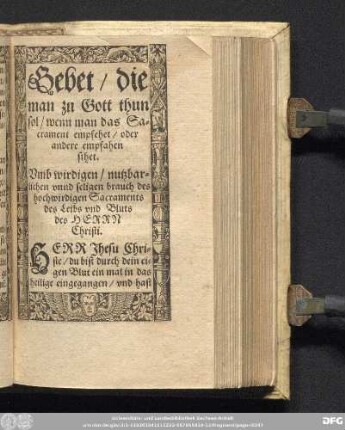 Gebet / die
man zu Gott thun
sol / wenn man das Sa-
crament empfehet / oder
andere empfahen
sihet.
Vmb wirdigen / nutzbar-
lichen vnnd seligen brauch des
hochwirdigen Sacraments
des Leibs vnd Bluts
des HERRN
Christi.
HERR Jhesu Chri-
ste / du bist durch dein ei-
gen Blut ein mal in das
heilige eingegangen / vnd hast
Universitäts- und Landesbibliothek Sachsen-Anhalt
DFG